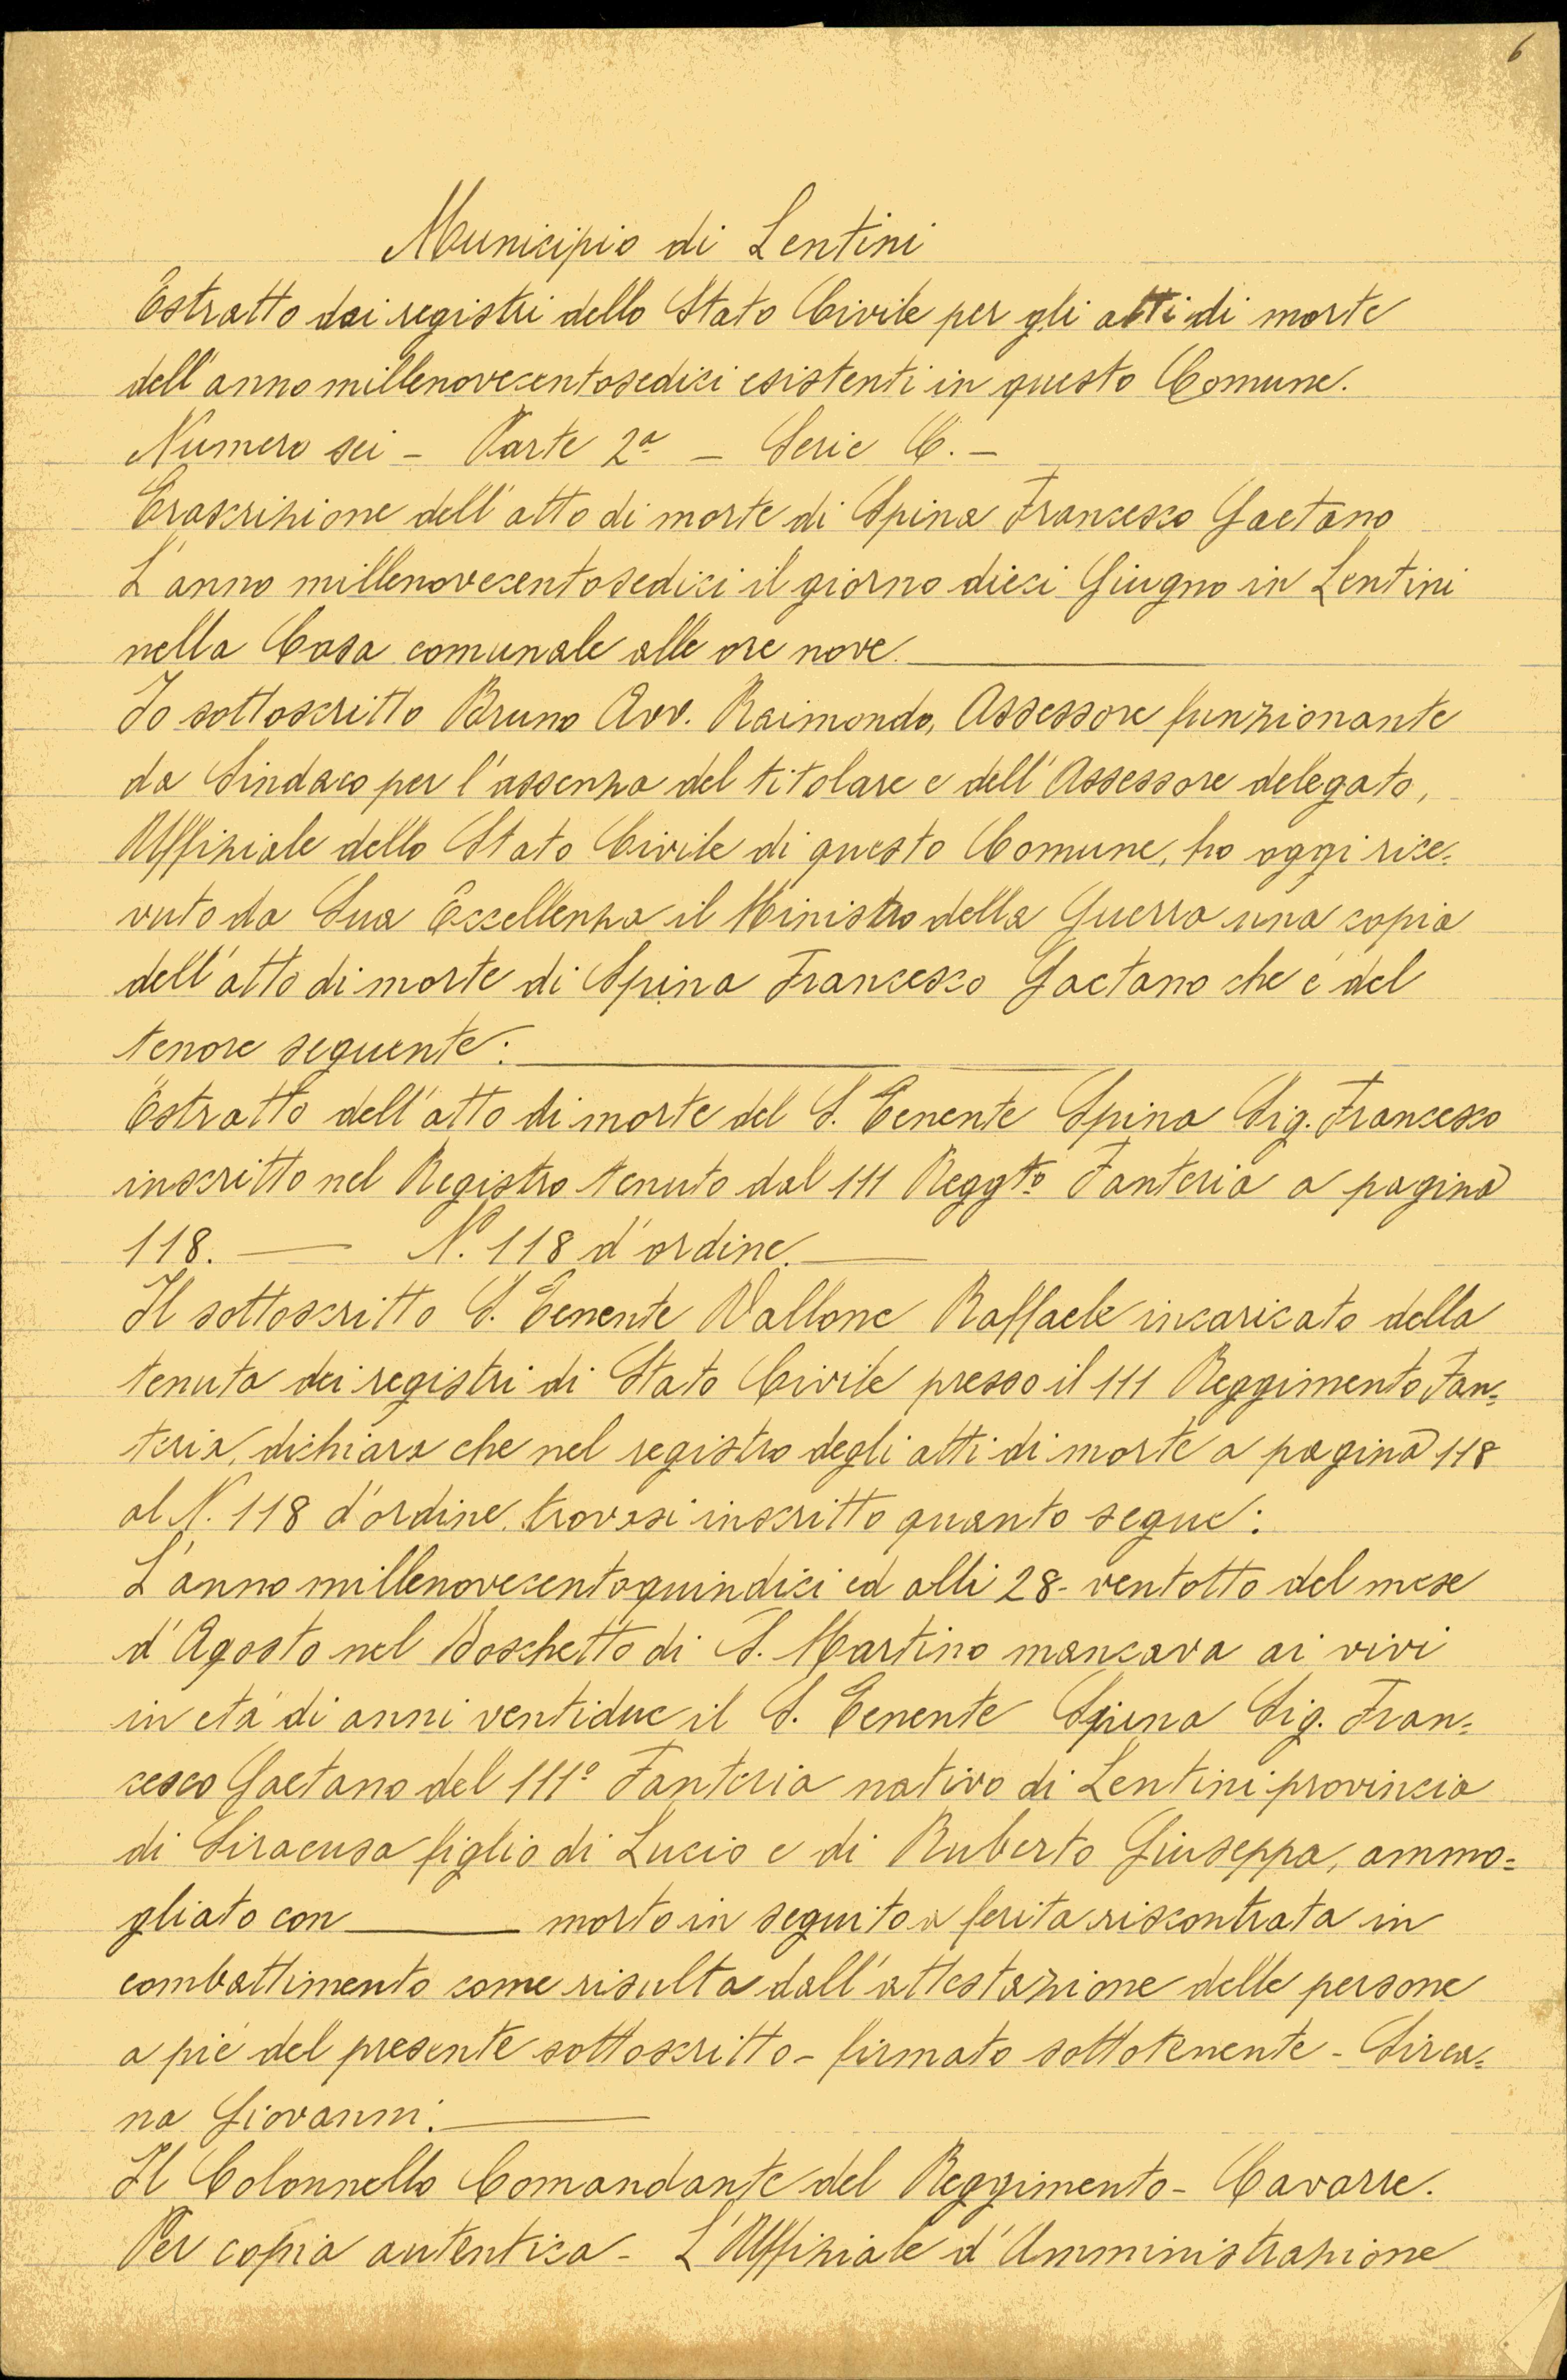 6
Municipio di Lentini
Estratto dai registri dello Stato Civile per gli atti di morte
dell'anno millenovecentosedici esistenti in questo Comune.
Numero sei - Parte 2ª - Serie C. -
Trascrizione dell'atto di morte di Spina Francesco Gaetano
L'anno millenovecentosedici il giorno dieci Giugno in Lentini
nella Casa comunale alle ore nove.
Io sottoscritto Bruno Avv. Raimondo, Assessore funzionante
da Sindaco per l'assenza del titolare e dell'Assessore delegato,
Uffiziale dello Stato Civile di questo Comune, ho oggi rice=
vuto da Sua Eccellenza il Ministro della Guerra una copia
dell'atto di morte di Spina Francesco Gaetano che é del
tenore seguente:
Estratto dell'atto di morte del S. Tenente Spina Sig. Francesco
inscritto nel Registro tenuto dal 111 Reggto Fanteria a pagina
118. — N. 118 d'ordine.
Il sottoscritto S. Tenente Vallone Raffaele incaricato della
tenuta dei registri di Stato Civile presso il 111 Reggimento Fan=
teria, dichiara che nel registro degli atti di morte a pagina 118
al N. 118 d'ordine, trovasi inscritto quanto segue:
L'anno millenovecentoquindici ed alli 28- ventotto del mese
d'Agosto nel Boschetto di S. Martino mancava ai vivi
in etá di anni ventidue il S. Tenente Spina Sig. Fran=
cesco Gaetano del 111° Fanteria nativo di Lentini provincia
di Siracusa figlio di Lucio e di Ruberto Giuseppa, ammo=
gliato con ——— morto in seguito a ferita riscontrata in
combattimento come risulta dall'attestazione delle persone
a pié del presente sottoscritto - firmato sottotenente -
na Giovanni.
Il Colonnello Comandante del Reggimento - Cavarre.
Per copia autentica - L'Uffiziale d'Amministrazione